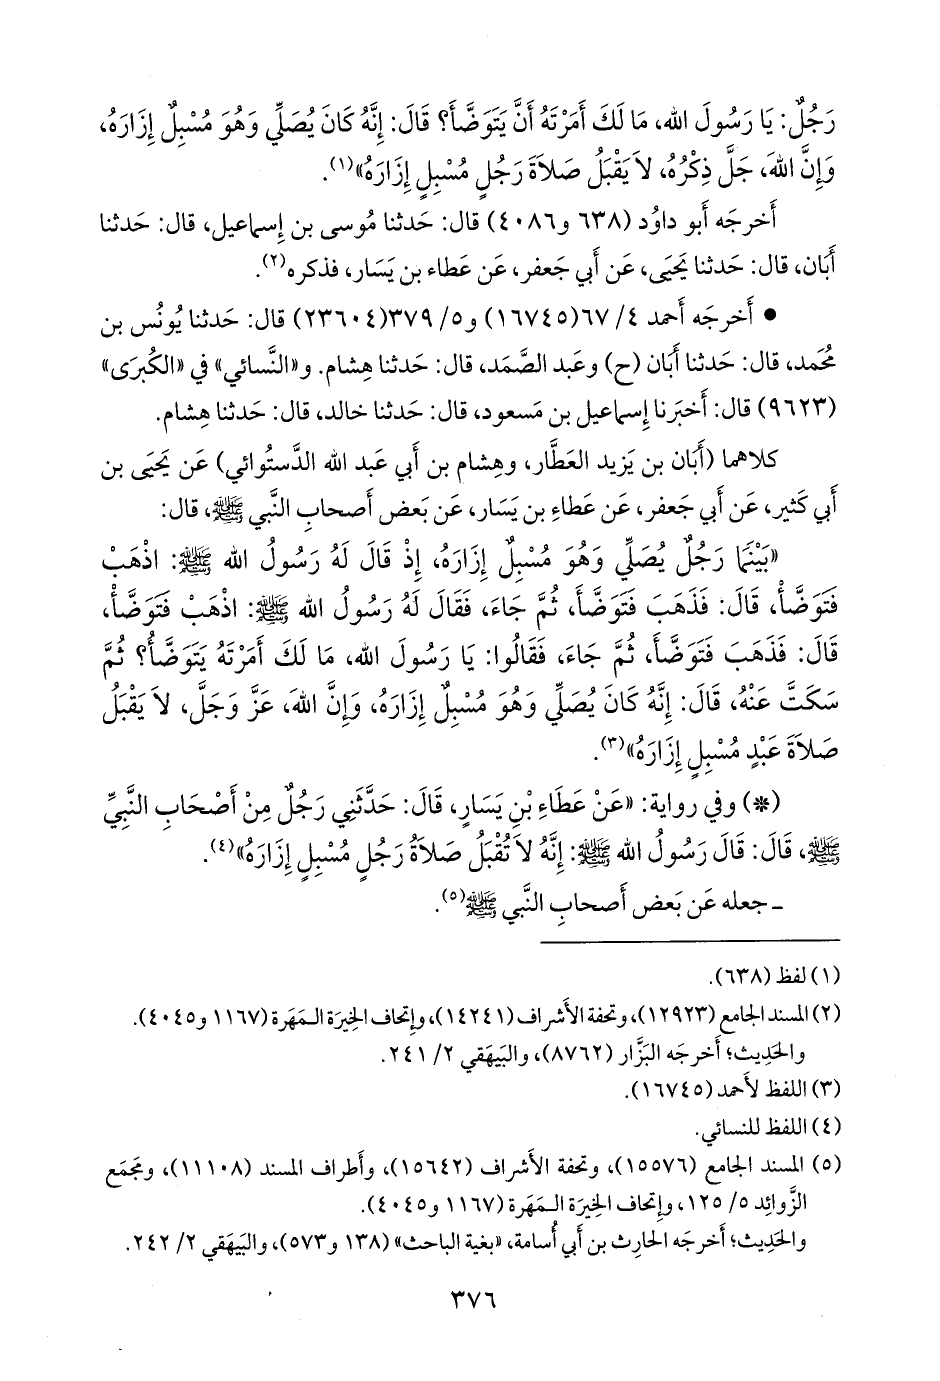 رَجُلٌ: يَا رَسُولَ الله، مَا لَكَ أَمَرْتَهُ أَنَّ يَتَوَضَّأَ؟ قَالَ: إِنَّهُ كَانَ يُصَلِّي وَهُوَ مُسْبِلٌ إِزَارَهُ،
وَإِنَّ اللهَ، جَلَّ ذِكْرُهُ، لاَ يَقْبَلُ صَلاَةَ رَجُلٍ مُسْبِلٍ إِزَارَهُ»(١).
أَخرجَه أَبو داوُد (٦٣٨ و٤٠٨٦) قال: حَدثنا مُوسى بن إِسماعيل، قال: حَدثنا
أَبَان، قال: حَدثنا يَحيَى، عَن أَبي جَعفر، عَن عَطاء بن يَسَار، فذكره(٢).
• أَخرجَه أَحمد ٤/ ٦٧(١٦٧٤٥) و٥/ ٣٧٩(٢٣٦٠٤) قال: حَدثنا يُونُس بن
مُحمد، قال: حَدثنا أَبَان (ح) وعَبد الصَّمَد، قال: حَدثنا هِشام. و«النَّسائي» في «الكُبرَى»
(٩٦٢٣) قال: أَخبَرنا إِسماعيل بن مَسعود، قال: حَدثنا خالد، قال: حَدثنا هِشام.
كلاهما (أَبَان بن يَزيد العَطَّار، وهِشام بن أَبي عَبد الله الدَّستُوائي) عَن يَحيَى بن
أَبي كَثير، عَن أَبي جَعفر، عَن عَطاءِ بن يَسَار، عَن بَعض أَصحابِ النَّبي ﷺ، قال:
«بَيْنَمَا رَجُلٌ يُصَلِّي وَهُوَ مُسْبِلٌ إِزَارَهُ، إِذْ قَالَ لَهُ رَسُولُ الله ﷺ: اذْهَبْ
فَتَوَضَّأْ، قَالَ: فَذَهَبَ فَتَوَضَّأَ، ثُمَّ جَاءَ، فَقَالَ لَهُ رَسُولُ الله ﷺ: اذْهَبْ فَتَوَضَّأْ،
قَالَ: فَذَهَبَ فَتَوَضَّأَ، ثُمَّ جَاءَ، فَقَالُوا: يَا رَسُولَ الله، مَا لَكَ أَمَرْتَهُ يَتَوَضَّأُ؟ ثُمَّ
سَكَتَّ عَنْهُ، قَالَ: إِنَّهُ كَانَ يُصَلِّي وَهُوَ مُسْبِلٌ إِزَارَهُ، وَإِنَّ اللهَ، عَزَّ وَجَلَّ، لاَ يَقْبَلُ
صَلاَةَ عَبْدٍ مُسْبِلٍ إِزَارَهُ»(٣).
(*) وفي رواية: «عَنْ عَطَاءِ بْنِ يَسَارٍ، قَالَ: حَدَّثَنِي رَجُلٌ مِنْ أَصْحَابِ النَّبِيِّ
ﷺ، قَالَ: قَالَ رَسُولُ الله ﷺ: إِنَّهُ لاَ تُقْبَلُ صَلاَةُ رَجُلٍ مُسْبِلٍ إِزَارَهُ»(٤).
ـ جعله عَن بَعض أَصحابِ النَّبي ﷺ(٥).
(١) لفظ (٦٣٨).
(٢) المسند الجامع (١٢٩٢٣)، وتحفة الأَشراف (١٤٢٤١)، وإِتحاف الخِيرَة الـمَهَرة (١١٦٧ و٤٠٤٥).
والحَدِيث؛ أَخرجَه البَزَّار (٨٧٦٢)، والبَيهَقي ٢/ ٢٤١.
(٣) اللفظ لأَحمد (١٦٧٤٥).
(٤) اللفظ للنسائي.
(٥) المسند الجامع (١٥٥٧٦)، وتحفة الأَشراف (١٥٦٤٢)، وأَطراف المسند (١١١٠٨)، ومَجمَع
الزَّوائِد ٥/ ١٢٥، وإِتحاف الخِيرَة الـمَهَرة (١١٦٧ و٤٠٤٥).
والحَدِيث؛ أَخرجَه الحارِث بن أَبي أُسامة، «بغية الباحث» (١٣٨ و٥٧٣)، والبَيهَقي ٢/ ٢٤٢.
٣٧٦